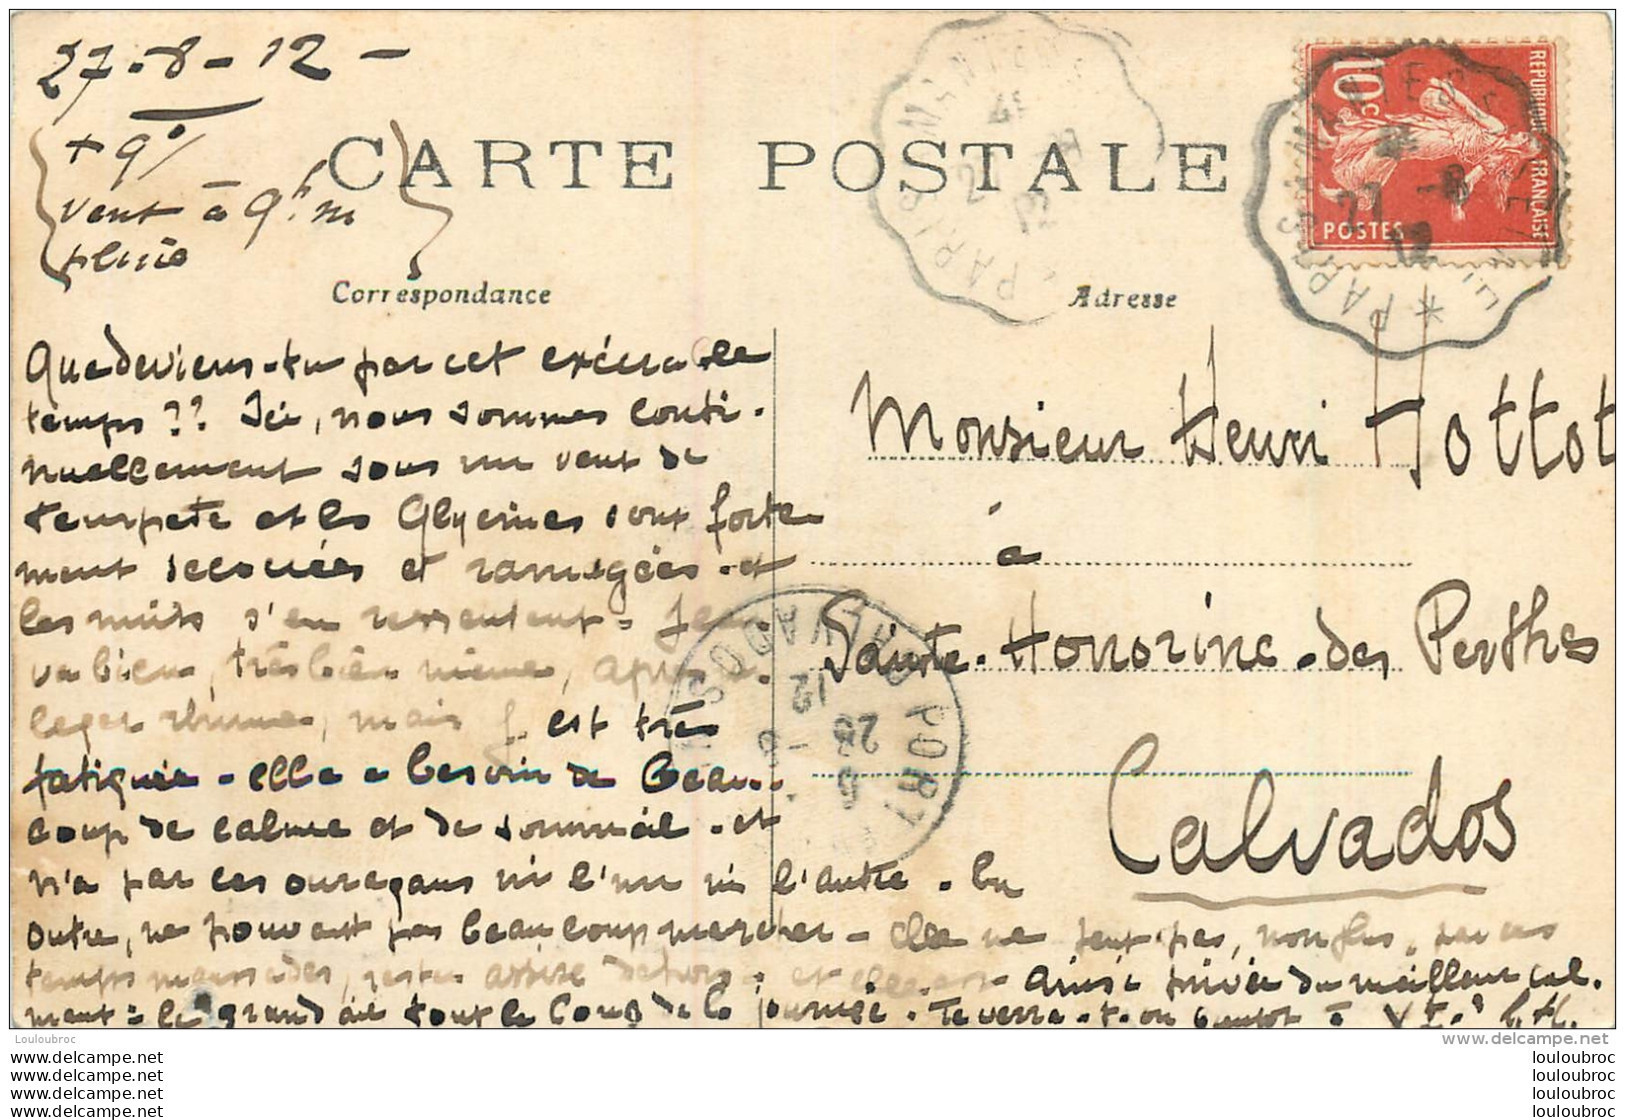 27-8-12-
+ 9°
vent à 9h m
pluie
CARTE POSTALE
Correspondance
Adresse
10c
REPUBLIQUE FRANÇAISE
POSTES
PARIS MANTES
27 -8
12
PARIS
CALVADOS
PORT
Que deviens-tu par cet exécrable
temps ?? Ici, nous sommes conti-
nuellement sous un vent de
tempête et les Glycines sont forte-
ment secouées et ramagées - et
les nuits s'en ressentent = Jean
va bien, très bien même, après
leger rhume, mais J. est très
fatiguée - elle a besoin de beau-
coup de calme et de sommeil - et
n'a par ces ouragans ni l'un ni l'autre. En
outre, ne pouvant pas beaucoup marcher - elle ne peut pas, non plus, par ces
temps maussades, rester assise dehors - et elle est ainsi privée du meilleur cal-
mant = le grand air tout le long de la journée. Te verra-t-on bientôt ?
Monsieur Henri Tottot
à
Sainte-Honorine-des Perthes
Calvados
Louloubroc
www.delcampe.net
www.delcampe.net
www.delcampe.com
www.delcampe.com
www.delcampe.com
www.delcampe.com
louloubroc
louloubroc
louloubroc
louloubroc